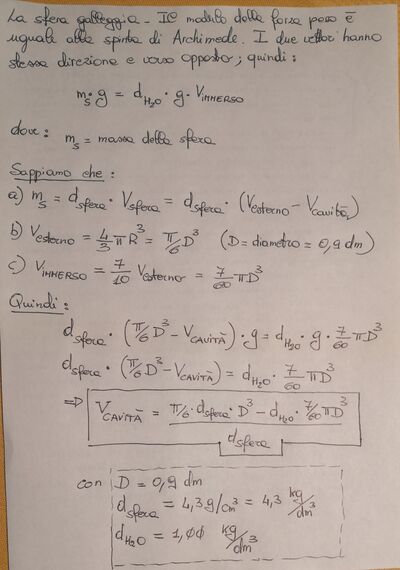 La sfera galleggia - Il modulo della forza peso è
uguale alla spinta di Archimede. I due vettori hanno
stessa direzione e verso opposto; quindi:
m_s · g = d_H₂O · g · V_IMMERSO
dove: m_s = massa della sfera
Sappiamo che:
a) m_s = d_sfera · V_sfera = d_sfera · (V_esterno - V_cavità)
b) V_esterno = 4/3 π R³ = π/6 D³ (D = diametro = 0,9 dm)
c) V_IMMERSO = 7/10 V_esterno = 7/60 π D³
Quindi:
d_sfera · (π/6 D³ - V_CAVITÀ) · g = d_H₂O · g · 7/60 π D³
d_sfera · (π/6 D³ - V_CAVITÀ) = d_H₂O · 7/60 π D³
⇒ V_CAVITÀ = (π/6 · d_sfera · D³ - d_H₂O · 7/60 π D³) / d_sfera
con D = 0,9 dm
d_sfera = 4,3 g/cm³ = 4,3 kg/dm³
d_H₂O = 1,00 kg/dm³